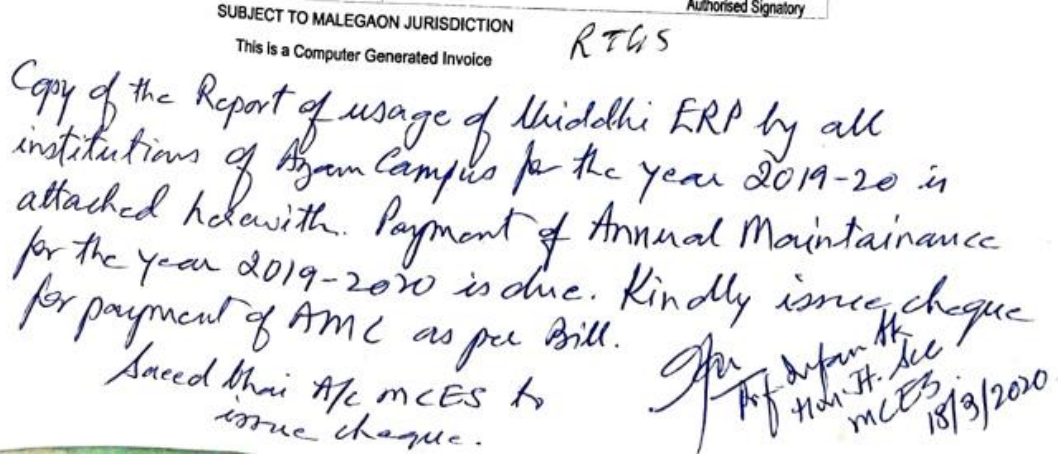 Authorised Signatory
SUBJECT TO MALEGAON JURISDICTION
This is a Computer Generated Invoice
RTGS
Copy of the Report of usage of ERP by all
institutions of Azam Campus for the year 2019-20 is
attached herewith. Payment of Annual Maintainance
for the year 2019-2020 is due. Kindly issue cheque
for payment of AMC as per Bill.
Saeed bhai A/c MCES to
issue cheque.
Prof Irfan
Hon. Jt. Sec
MCES
18/3/2020